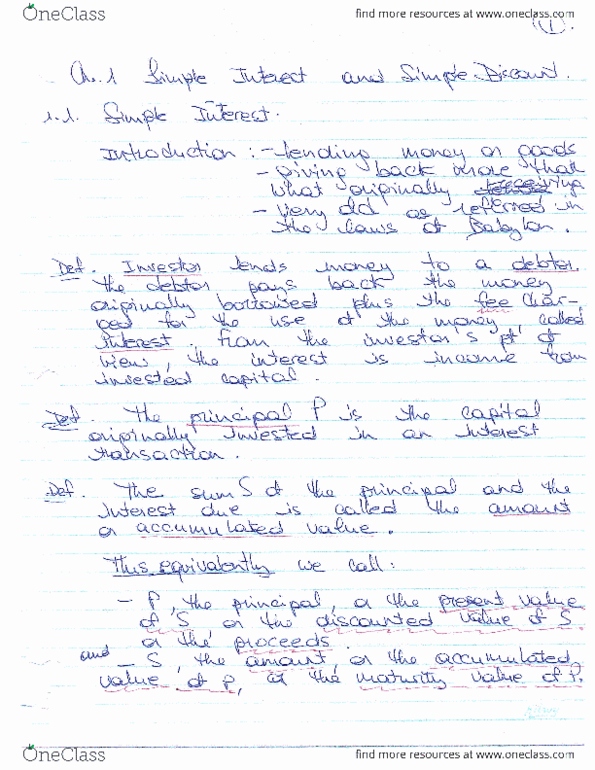 OneClass
find more resources at www.oneclass.com
1.
Ch. 1 Simple Interest and Simple Discount.
1.1. Simple Interest.
Introduction : - lending money or goods
- giving back more that
what originally
- very old as referred in
the laws of Babylon.
Def. Investor lends money to a debtor.
the debtor pays back the money
originally borrowed plus the fee char-
ged for the use of the money, called
interest. from the investor's pt of
view, the interest is income from
invested capital.
Def. The principal P is the capital
originally invested in an interest
transaction.
Def. The sum S of the principal and the
interest due is called the amount
or accumulated value.
Thus equivalently we call:
- P, the principal, or the present value
of S or the discounted value of S
or the proceeds.
and - S, the amount, or the accumulated
value of P, or the maturity value of P.
OneClass
find more resources at www.oneclass.com